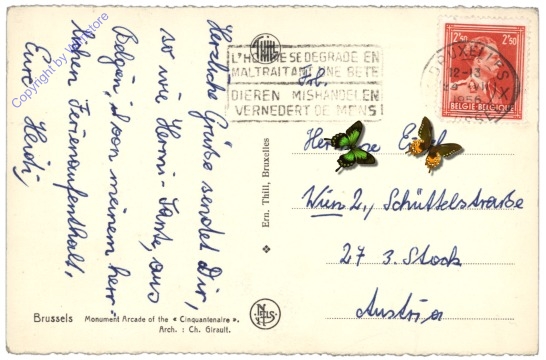 Herzliche Grüße sendet Dir,
so wie Hermi-Tante, aus
Belgien, von meinem herr-
lichen Ferienaufenthalt,
Eure Heidi,
Copyright by
L'HOMME SE DEGRADE EN
MALTRAITANT UNE BETE
DIEREN MISHANDELEN
VERNEDERT DE MENS!
2F50 2F50
BRUXELLES
12-13
BELGIE-BELGIQUE
Frl.
Wien 2., Schüttelstraße
27 3. Stock
Austria
Ern. Thill, Bruxelles
NELS
Brussels Monument Arcade of the « Cinquantenaire ».
Arch. : Ch. Girault.